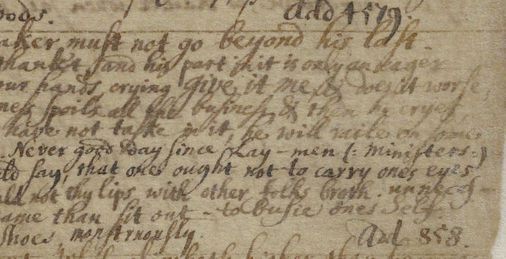 oods. Add 4579
aker must not go beyond his last.
thanket, and his part in it is only an eager
our hands, crying give it me & does it worse,
mes spoils all the busines & then he cryes
have not taske in it, he will raile on some
Never good day since slay-men (: ministers :)
ld say, that one ought not to carry ones eyes
ld not thy lips with other folks broth. unneces-
ame than sit out - to busie ones self
shoes monstruously. Add 858.